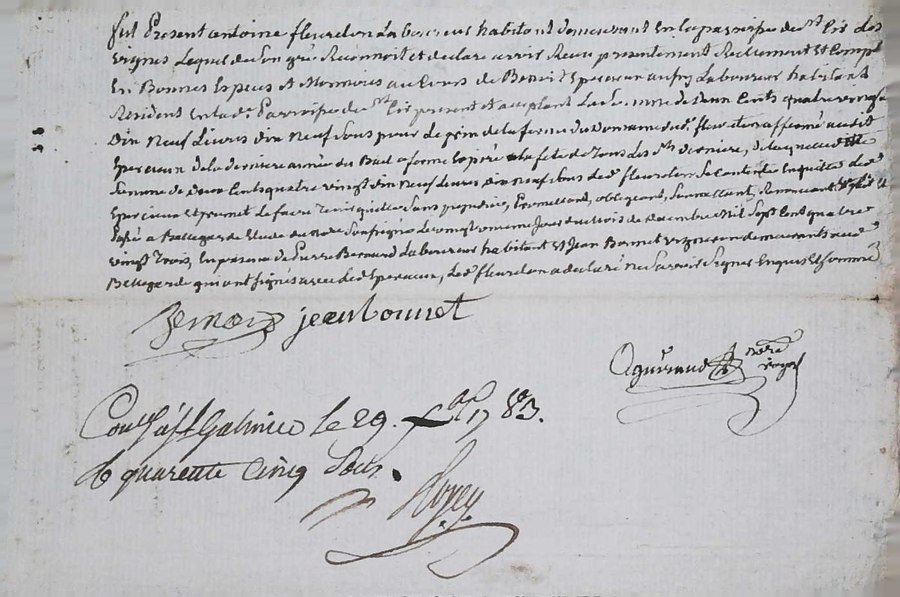 fut Present antoine fleurdelon Laboureur habitant demeurant En la parroisse de st Cir des
vignes Lequel de son gré Reconnoit et declare avoir Recu presentement Reellement Et Compt
En Bonnes Especes et Monnoies au Cours de Benoit Epercieux Laboureur habitant
Resident Enlad. Parroisse de st Cir present et acceptant La somme de deux Cents quatre vingt
Dix Neuf Livres dix Neuf Sous pour Le prix de la ferme du Domaine dud. fleurdelon affermé audit
Epercieux de la derniere année du Bail a ferme Expiré a la fete de Tous Les sts derniere, de laquelle
Somme de deux Cents quatre vingt dix Neuf Livres dix Neuf Sous Led. fleurdelon Se Contente En quitte led.
Epercieux Et promet Le faire Tenir quitte Sans prejudice, Promettant, obligeant, Soumettant, Renoncant
passé a Bellegarde Etude du Nore Soussigné Le vingt Jour du Mois de decembre Mil Sept Cent quatre
vingt Trois, En presence de Pierre Bernard Laboureur habitant Et Jean Bonnet vigneron demeurants aud.
Bellegarde qui ont signés avec led. Epercieux, Led. fleurdelon a declaré Ne Savoir Signer Enquis Et Sommé
Bernard jean bonnet
nore royal
Coulé à st Galmier le 29. Xbre 1783.
quarente Cinq Sous.